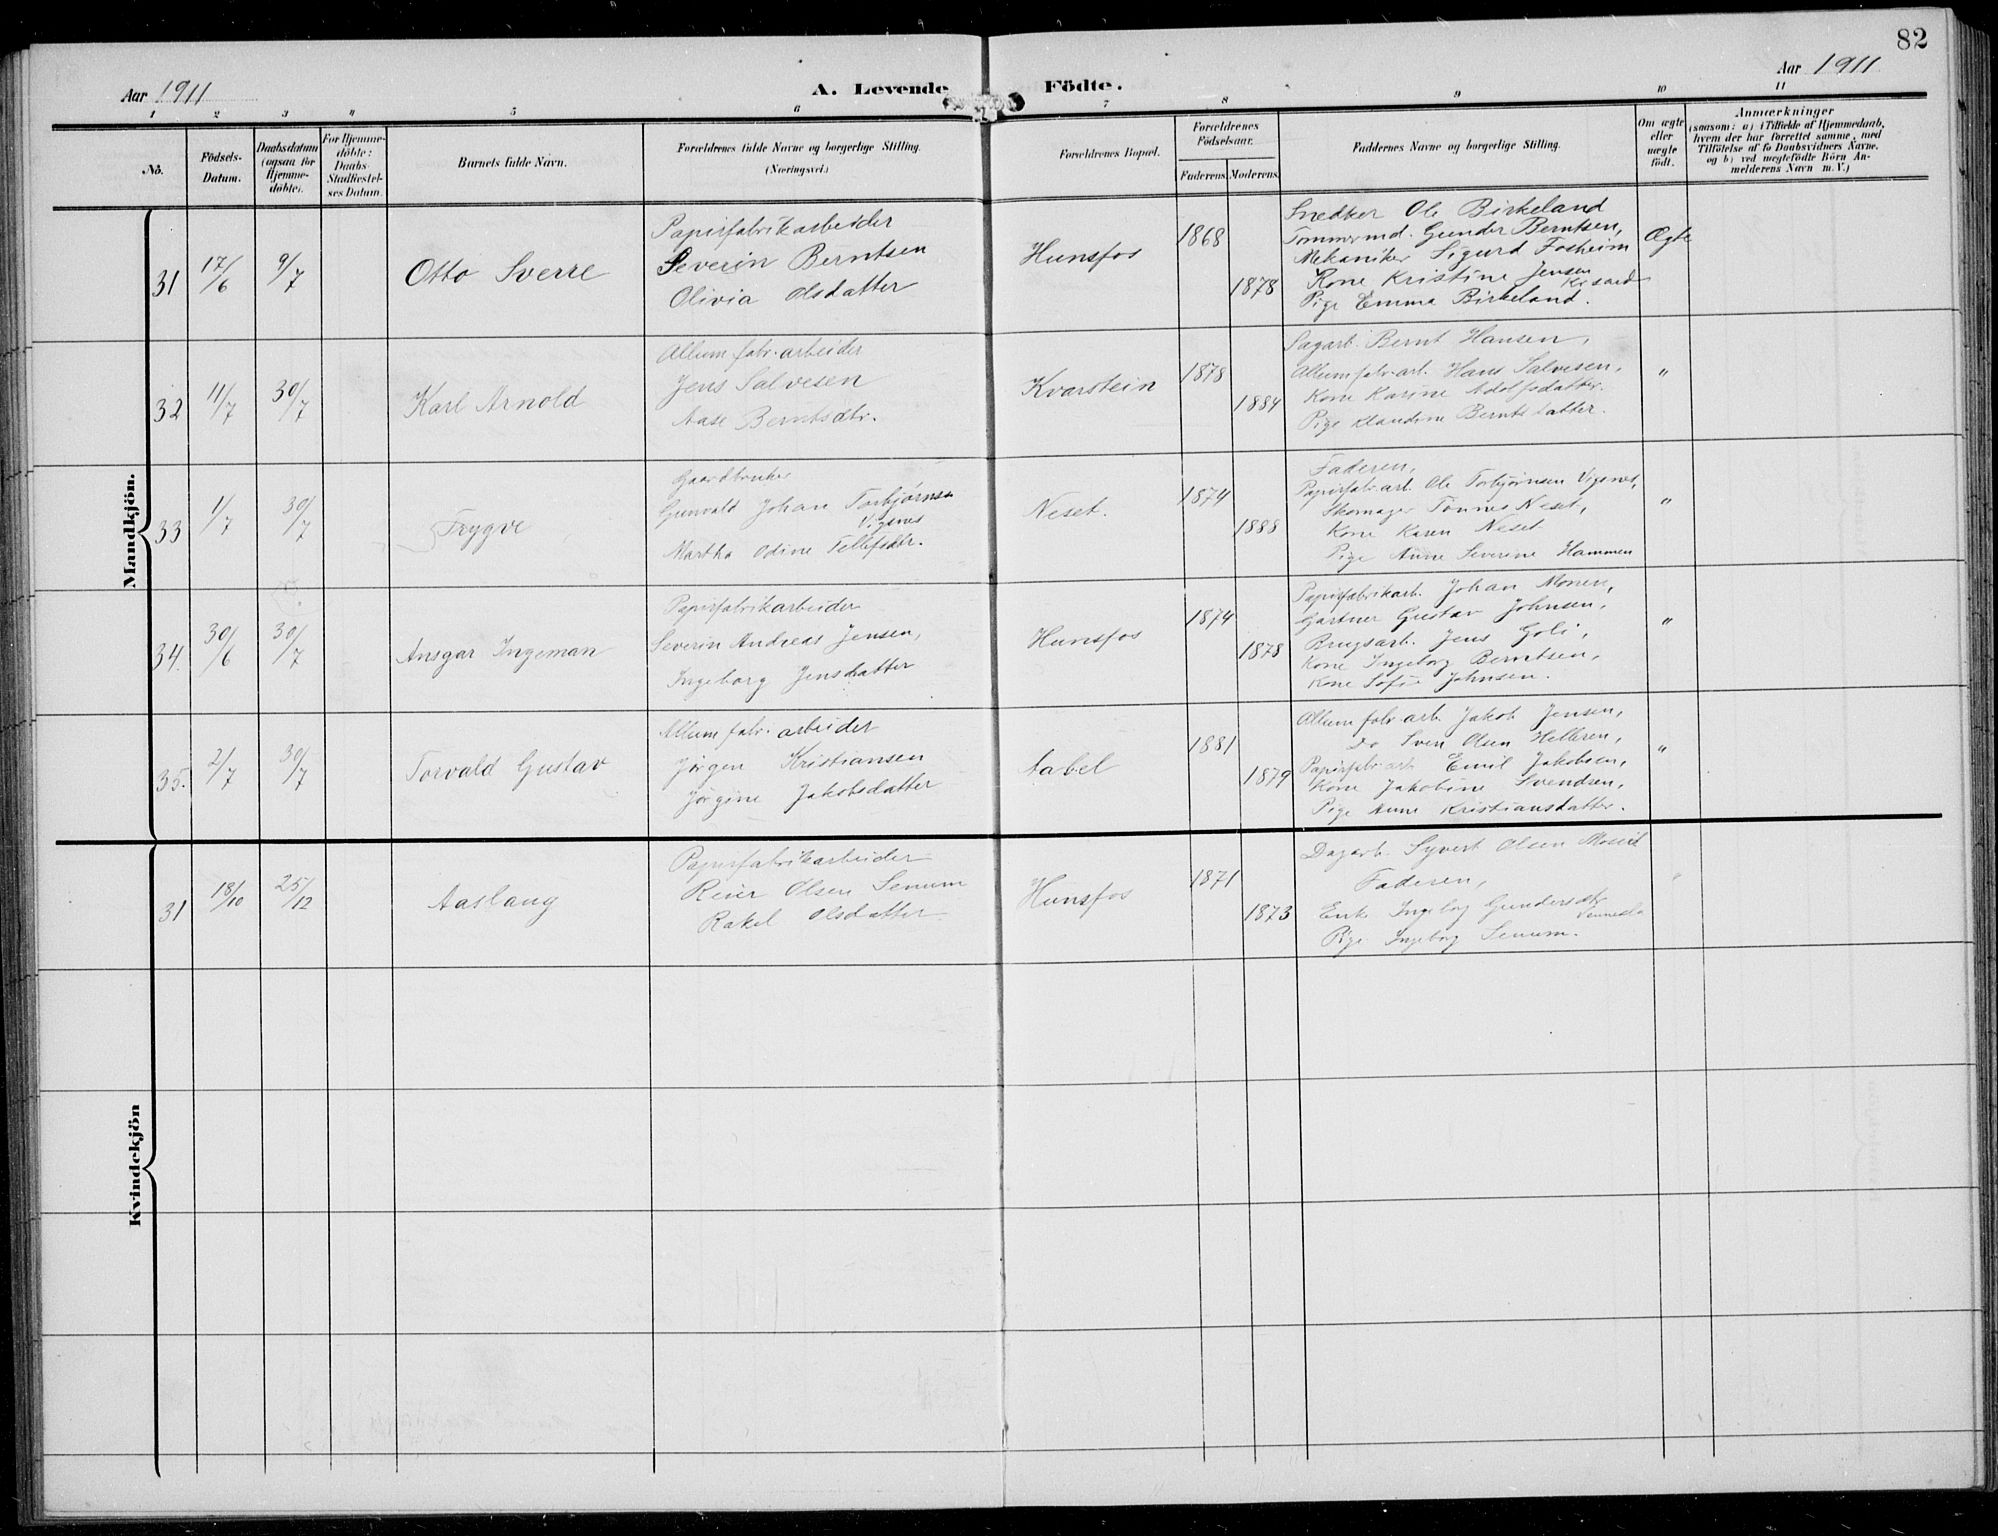 82
Aar 1911
A. Levende Födte.
Aar 1911
1 2 3 4 5 6 7 8 9 10 11
No.
Födsels-Datum.
Daabsdatum (ogsaa for Hjemme-döbte).
For Hjemme-döbte: Daabs Stadfæstel-ses Datum.
Barnets fulde Navn.
Forældrenes fulde Navne og borgerlige Stilling.
(Næringsvei.)
Forældrenes Bopæl.
Forældrenes Födselsaar.
Faderens. Moderens.
Faddernes Navne og borgerlige Stilling.
Om ægte eller uægte födt.
Anmærkninger
(saasom: a) i Tilfælde af Hjemmedaab,
hvem der har forrettet samme, med
Tilföielse af to Daabsvidners Navne,
og b) ved uægtefödte Börn An-
melderens Navn m. V.)
Mandkjön.
31 17/6 9/7 Otto Sverre
Papirfabrikarbeider
Severin Berntsen
Olivia Olsdatter
Hunsfos 1868 1878
Snedker Ole Birkeland
Tømmermd. Gunder Berntsen,
Mekaniker Sigurd Fosheim
Kone Kristine Jensen
Pige Emma Birkeland.
Ægte
32 11/7 30/7 Karl Arnold
Allum fabr. arbeider
Jens Salvesen
Aase Berntsdtr.
Kvarstein 1878 1884
Sagarb. Bernt Hansen,
Allumfabr.arb. Hans Salvesen,
Kone Karine Adolfsdatter
Pige Klaudine Berntsdatter.
"
33 1/7 30/7 Trygve
Gaardbruker
Gunvald Johan Torbjørnsen
Vigenes
Martha Odine Tellefsdtr.
Neset. 1874 1888
Faderen,
Papirfabr.arb. Ole Torbjørnsen Vigenes,
Skomager Tønnes Neset,
Kone Karen Neset
Pige Anne Severine Hammen
"
34. 30/6 30/7 Ansgar Ingeman
Papirfabrikarbeider
Severin Andreas Jensen,
Ingeborg Jensdatter
Hunsfos 1874 1878
Papirfabrikarb. Johan Monen,
Gartner Gustav Johnsen,
Brugsarb. Jens Goli,
Kone Ingeborg Berntsen,
Kone Sofie Johnsen.
"
35. 2/7 30/7 Torvald Gustav
Allum fabr. arbeider
Jørgen Kristiansen
Jørgine Jakobsdatter
Aabel 1881 1879
Allum fabr. arb. Jakob Jensen,
Do Sven Olsen Helleren,
Papirfabr. arb. Emil Jakobsen,
Kone Jakobine Svendsen,
Pige Anne Kristiansdatter.
"
Kvindekjön
31 18/10 25/12 Aaslaug
Papirfabrikarbeider
Reier Olsen Senum
Rakel Olsdatter
Hunsfos 1871 1873
Dagarb. Syvert Olsen
Faderen,
Enke Ingeborg Gundersdtr
Vennesla
Pige Ingeborg Senum.